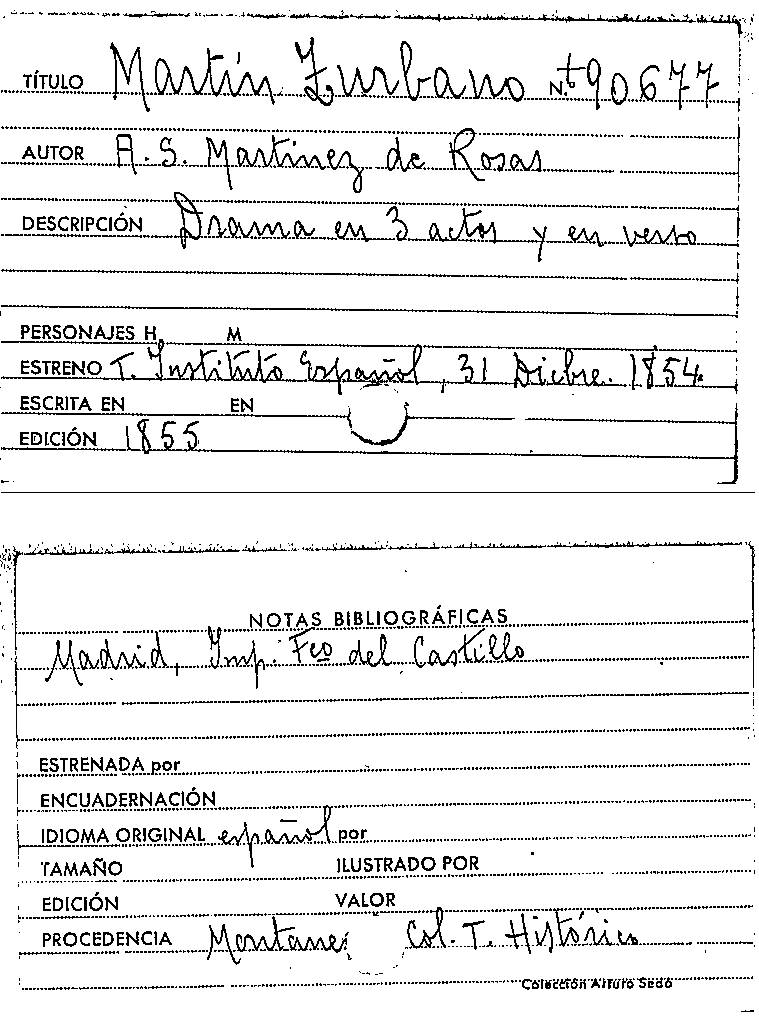 TÍTULO Martín Zurbano N.º t90677
AUTOR A. S. Martinez de Rosas
DESCRIPCIÓN Drama en 3 actos y en verso
PERSONAJES H. M
ESTRENO T. Instituto Español, 31 Dicbre. 1854.
ESCRITA EN EN
EDICIÓN 1855
NOTAS BIBLIOGRÁFICAS
Madrid, Imp. Fco del Castillo
ESTRENADA por
ENCUADERNACIÓN
IDIOMA ORIGINAL español por
TAMAÑO ILUSTRADO POR
EDICIÓN VALOR
PROCEDENCIA Montaner Col. T. Histórico
Colección Arturo Sedó